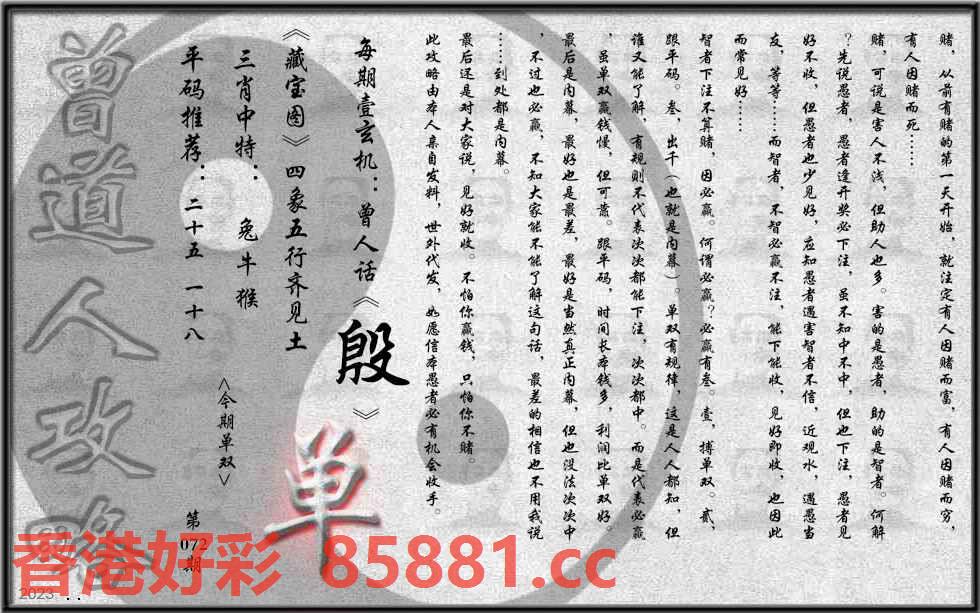 赌，从前有赌的第一天开始，就注定有人因赌而富，有人因赌而穷，
有人因赌而死……
赌，可说是害人不浅，但助人也多。害的是愚者，助的是智者。何解
？先说愚者，愚者逢开奖必下注，虽不知中不中，但也下注，愚者见
好不收，但愚者也少见好，应知愚者遇害智者不信，近观水，遇愚当
友，等等……而智者，不智必赢不注，能下能收，见好即收，也因此
而常见好……
智者下注不算赌，因必赢。何谓必赢？必赢有叁。壹，搏单双。贰，
跟平码。叁，出千（也就是内幕）。单双有规律，这是人人都知，但
谁又能了解，有规则不代表次次都能下注，次次都中。而是代表必赢
，虽单双赢钱慢，但可靠。跟平码，时间长本钱多，利润比单双好。
最后是内幕，最好也是最差，最好是当然真正内幕，但也没法次次中
，不过也必赢，不知大家能不能了解这句话，最差的相信也不用我说
……到处都是内幕。
最后还是对大家说，见好就收。不怕你赢钱，只怕你不赌。
此攻略由本人亲自发料，世外代发，如愿信本愚者必有机会收手。
每期壹玄机：曾人话《殷》
《藏宝图》四象五行齐见土
三肖中特：兔牛猴
平码推荐：二十五 一十八
<今期单双>
单
第072期
曾道人攻略
香港好彩 85881.cc
2023